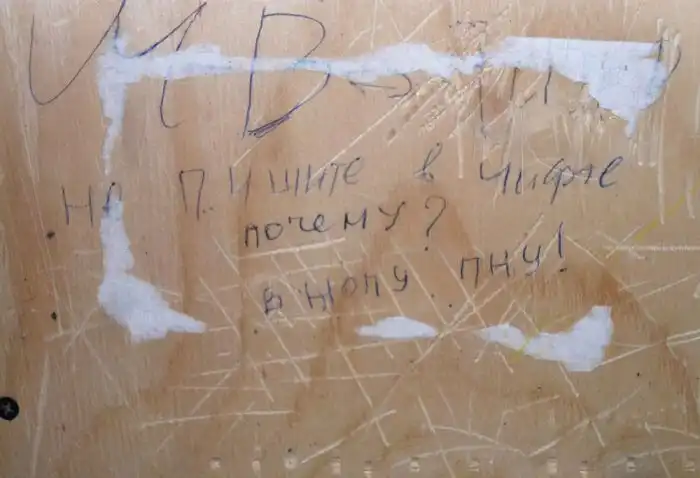 На пишите в лифте
почему?
в жопу пну!